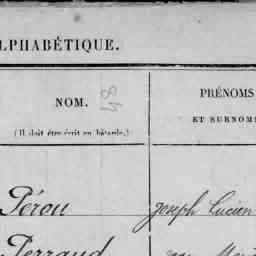 LPHABÉTIQUE.
NOM. 48
PRÉNOMS
ET SURNOMS
(Il doit être écrit en bâtarde.)
Pérou Joseph Lucien
Perraud